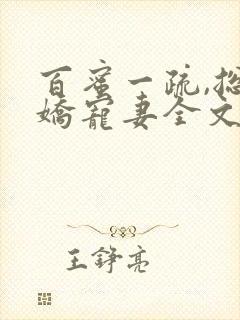 百蜜一疏,总
娇宠妻全文
王铮亮